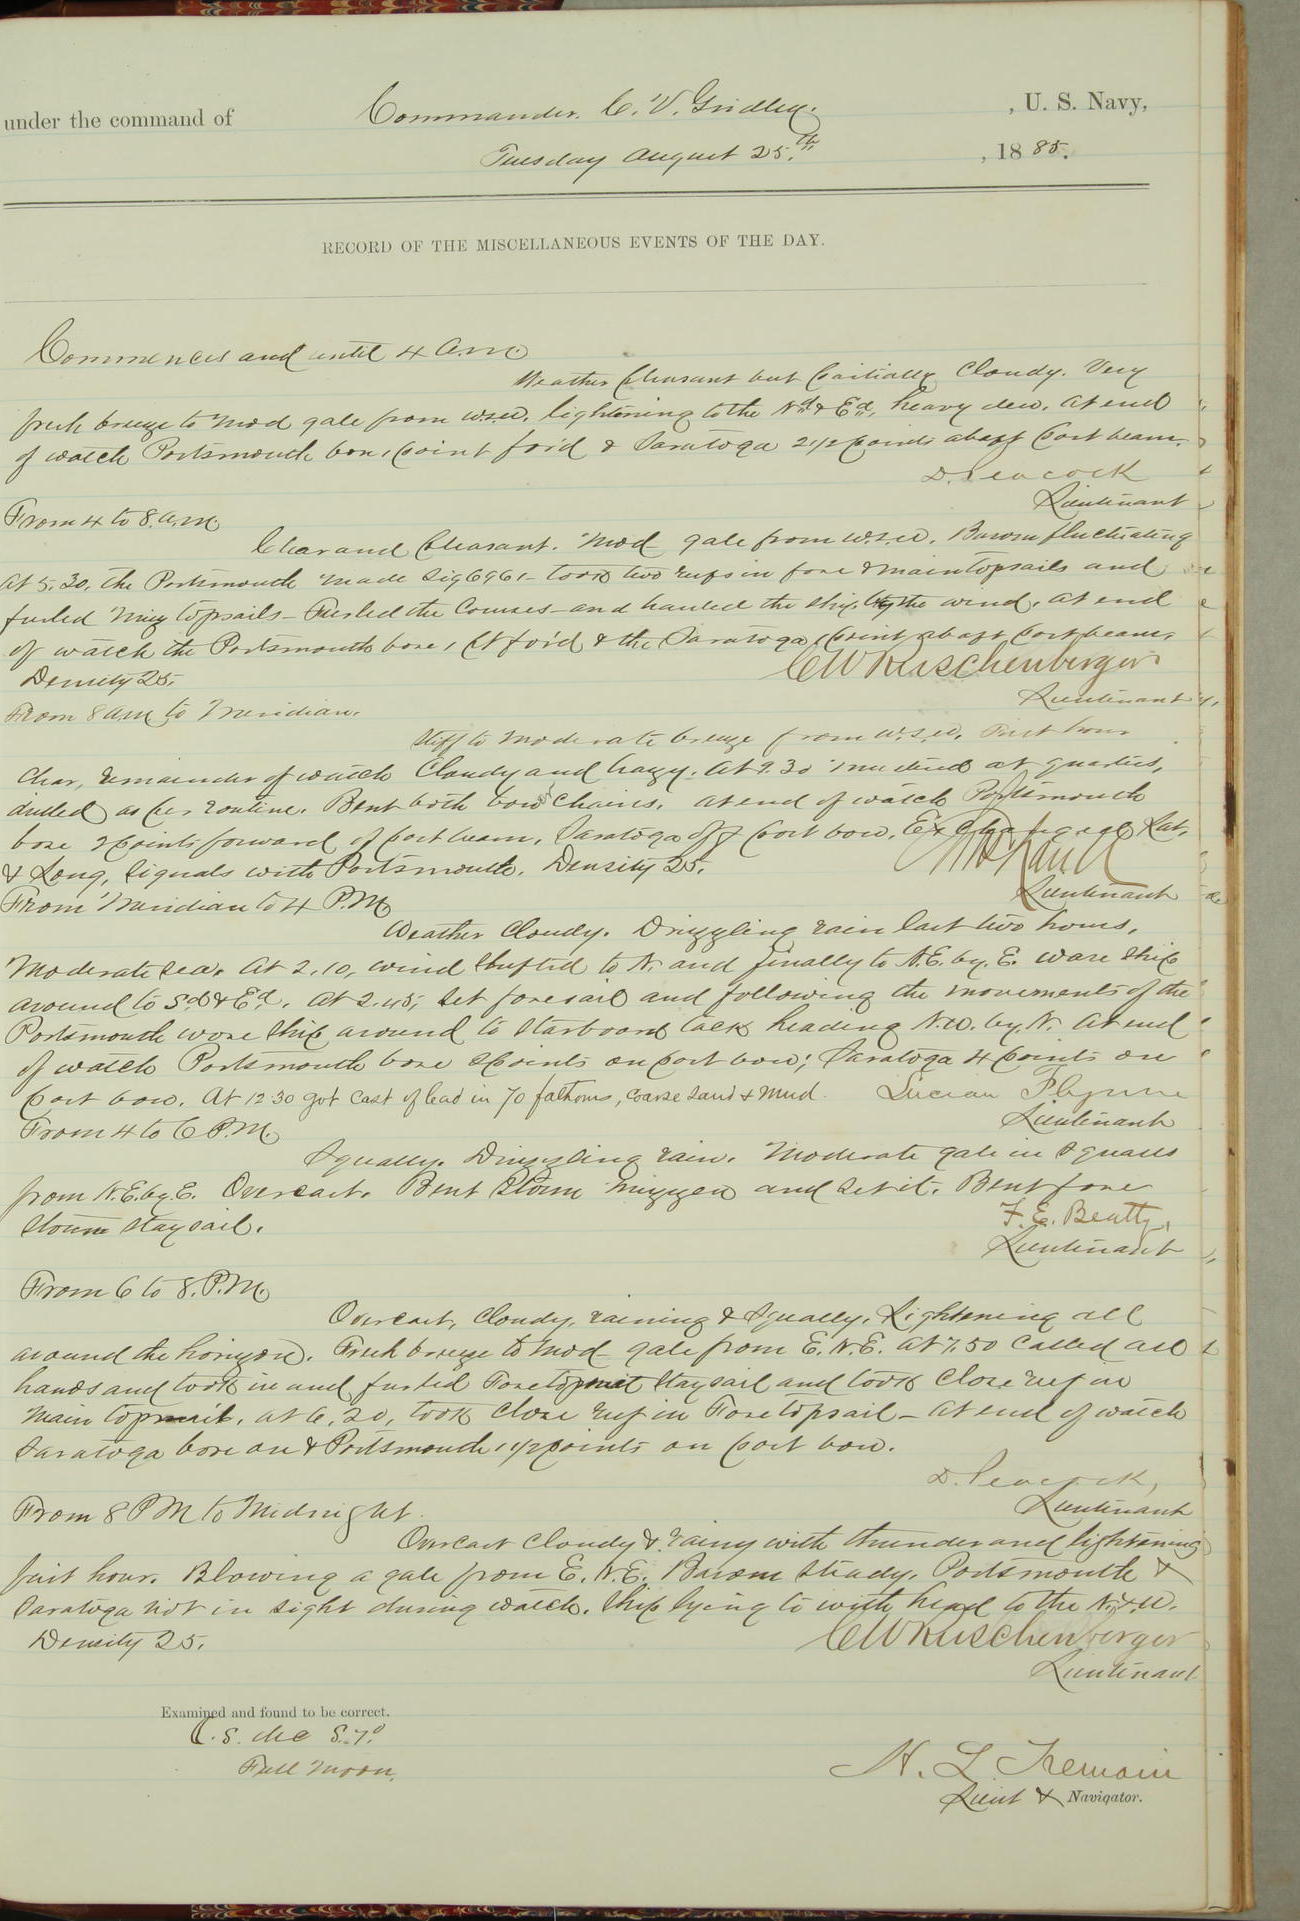 under the command of Commander. C. V. Gridley. , U. S. Navy,
Tuesday August 25th, , 1885.
RECORD OF THE MISCELLANEOUS EVENTS OF THE DAY.
Commences and until 4 a.m.
Weather pleasant but partially cloudy. Very
fresh breeze to mod gale from w.s.w. lightening to the Nd & Ed, heavy dew. At end
of watch Portsmouth bore 1 point for'd & Saratoga 2 1/2 points abaft port beam.
D. Peacock
Lieutenant
From 4 to 8. a.m.
Clear and pleasant. Mod gale from w.s.w. Barom fluctuating
at 5.30, the Portsmouth made Sig 6961 - took two reefs in fore & main topsails and
furled Miz topsails - Furled the Courses and hauled the ship by the wind. at end
of watch the Portsmouth bore 1 pt for'd & the Saratoga 1 point abaft port beam.
Density 25.
C W Ruschenberger
Lieutenant
From 8 am to Meridian.
Stiff to moderate breeze from w.s.w. First hour
clear, remainder of watch cloudy and hazy. At 9.30 mustered at quarters,
drilled as per routine. Bent both bower chains. at end of watch Portsmouth
bore 2 points forward of port beam, Saratoga off port bow. Exchanged Lat.
& Long, signals with Portsmouth. Density 25.
Lieutenant
From Meridian to 4 P.M.
Weather Cloudy. Drizzling rain last two hours.
Moderate sea. At 2.10, wind shifted to N. and finally to N.E. by. E. wore ship
around to Sd & Ed. At 2.45, set foresail and following the movements of the
Portsmouth wore ship around to starboard tack heading N.W. by. N. At end
of watch Portsmouth bore 2 points on port bow; Saratoga 4 points on
port bow. At 12 30 got cast of lead in 70 fathoms, coarse sand & mud.
Lucian Flynne
Lieutenant
From 4 to 6 P.M.
Squally. Drizzling rain. Moderate gale in squalls
from N.E. by. E. Overcast. Bent Storm mizzen and set it. Bent fore
storm staysail.
F. E. Beatty,
Lieutenant
From 6 to 8. P.M.
Overcast, cloudy, raining & squally. Lightening all
around the horizon. Fresh breeze to mod gale from E.N.E. At 7.50 called all
hands and took in and furled Fore topmast staysail and took close reef in
main topsail. at 6.20, took close reef in Fore topsail - At end of watch
Saratoga bore on & Portsmouth 1 1/2 points on port bow.
D. Peacock,
Lieutenant
From 8 PM to Midnight.
Overcast cloudy & rainy with thunder and lightening
first hour. Blowing a gale from E.N.E. Barom steady. Portsmouth &
Saratoga not in sight during watch. Ship lying to with head to the N. & W.
Density 25.
C W Ruschenberger
Lieutenant
Examined and found to be correct.
Full Moon.
H. L. Tremain
Lieut & Navigator.